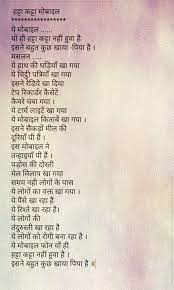 हट्टा कट्टा मोबाइल
*****************
ये मोबाइल ......
यों ही हट्टा कट्टा नहीं हुवा है
इसने बहुत कुछ खाया -पिया है ।
मसलन .....
ये हाथ की घड़ियाँ खा गया
ये चिट्ठी पत्रियाँ खा गया
इसने रेडियो खा दिया
टेप रिकार्डर कैसेटें
कैमरे चबा गया ।
ये टार्च लाईटें खा गया
ये मोबाइल किताबें खा गया ।
इसने सैकड़ों मील की
दूरियाँ पी है ।
इस मोबाइल ने
तन्हाइयाँ पी है ।
पड़ोस की दोस्ती
मेल मिलाप खा गया
समय नही लोगों के पास
ये लोगों का वक्त खा गया ।
ये पैंसे खा रहा है
ये रिश्ते खा रहा है।
ये लोगों की
तंदुरुस्ती खा रहा है
ये लोगों को रोगी बना रहा है ।
ये मोबाइल फोन यों ही
हट्टा कट्टा नहीं हुवा है ।
इसने बहुत कुछ खाया पिया है ॥